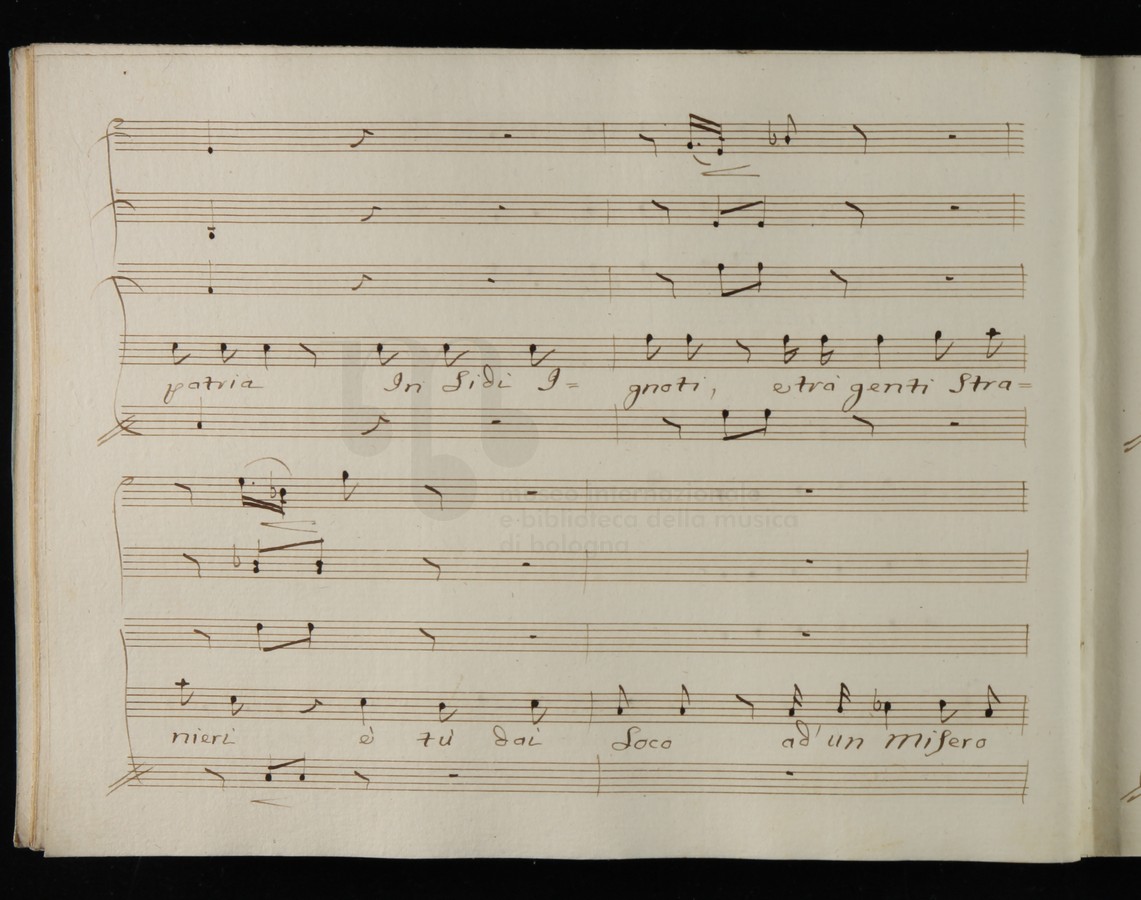 patria In Lidi I= gnoti, e trà genti Stra=
museo internazionale
e biblioteca della musica
di bologna
nieri è tù dai Loco ad' un misero